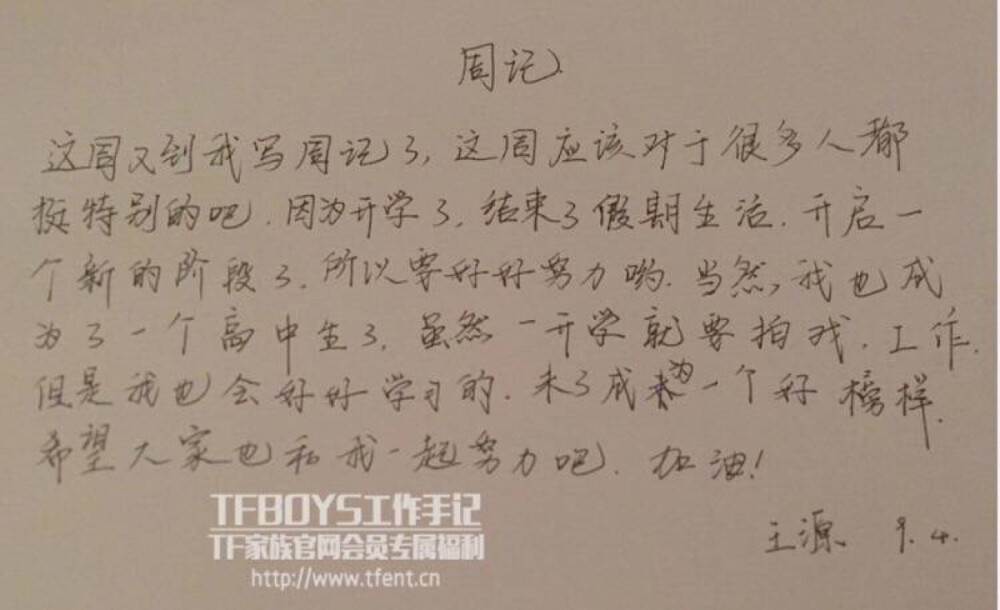 周记
这周又到我写周记了,这周应该对于很多人都
挺特别的吧.因为开学了.结束了假期生活.开启一
个新的阶段了.所以要好好努力哟.当然,我也成
为了一个高中生了.虽然一开学就要拍戏.工作.
但是我也会好好学习的.未了成为一个好榜样.
希望大家也和我一起努力吧.加油!
王源 9.4.
TFBOYS工作手记
TF家族官网会员专属福利
http://www.tfent.cn